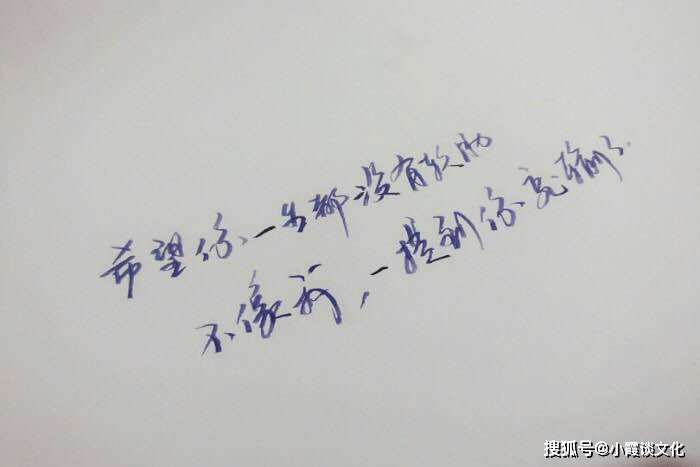 希望你一生都没有软肋
不像我，一提到你竟输了
搜狐号@小霞谈文化